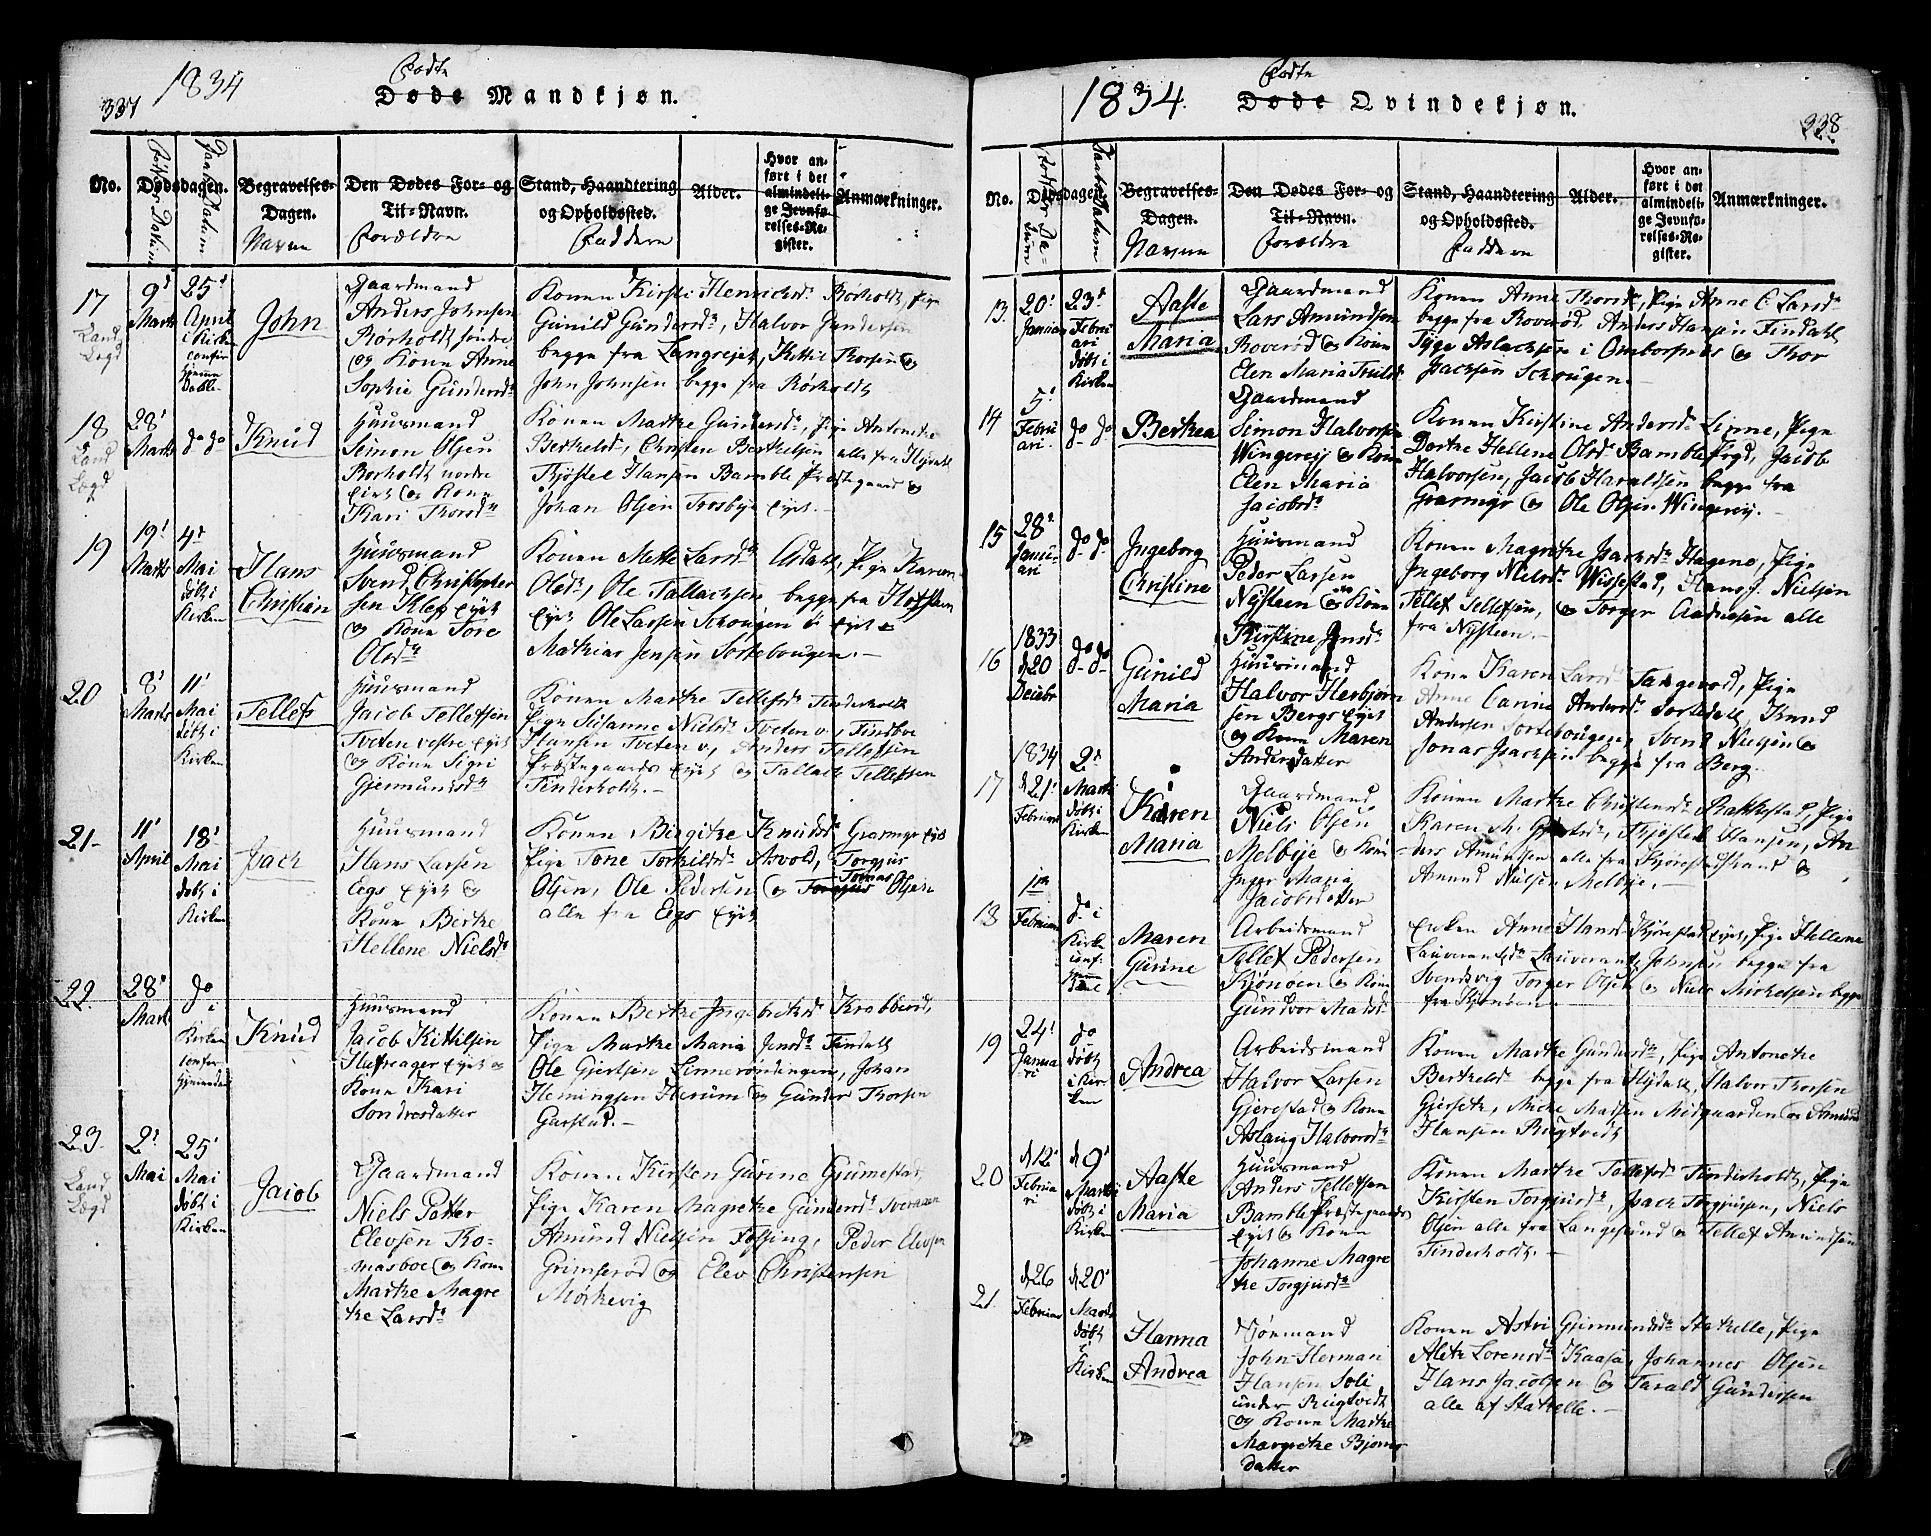 337
1834
Fødte
Døde Mandkjøn.
No.
Dødsdagen.
Begravelses-
Dagen.
Navne
Den Dødes For- og
Til-Navn.
Forældre
Stand, Haandtering
og Opholdssted.
Faddere
Alder.
Hvor an-
ført i det
almindeli-
ge Jevnfø-
relses-Re-
gister.
Anmærkninger.
17
Land
Lægd
9d
Marts
25d
April
i Kirken
John
Gaardmand
Anders Johnsen
Rørholdt søndre
og Kone Anne
Sophie Gundersdr
Konen Kirsti Henrichsdr Rørholdt, Pige
Gunild Gundersdr, Halvor Gundersen
begge fra Langrejer, Kittil Thorsen og
John Johnsen begge fra Rørholdt
18
Land
Lægd
28'
Marts
do do
Knud
Huusmand
Simon Olsen
Rørholdt nordre
Eyet og Kone
Kari Thorsdr
Konen Marthe Gundersdr, Pige Antonethe
Berthelsdr, Christen Berthelsen alle fra Flydahl
Kjøstel Hansen Bamble Præstegaard og
Johan Olsen Trosbye Eyet
19
19'
Marts
4d
Mai
døbt i
Kirken
Hans
Christian
Huusmand
Svend Christopher
sen Klep Eyet
og Kone Tore
Olsdr
Konen Mette Larsdr Asdahl, Pige Karen
Olsdr, Ole Tallachsen begge fra Hafsteen
Eyet Ole Larsen Schougen Eyet
Mathias Jensen Sortebougen.
20
8'
Marts
11'
Mai
døbt i
Kirken
Tellefs
Huusmand
Jacob Tellefsen
Tveten vestre Eyet
og Kone Sigri
Gjermundsdr
Konen Marthe Tellefsdr Tinderholt
Pige Susanne Nielsdr Tveten v, Findboe
Hansen Tveten v, Anders Tellefsen
Præstegaards Eyet og Tallach Tellefsen
Tinderholt.
21.
11'
April
18'
Mai
døbt i
Kirken
Isach
Huusmand
Hans Larsen
Eegs Eyet og
Kone Berthe
Hellene Nielsdr
Konen Birgithe Knudsdr Grasmyr Eyet
Pige Tone Torkilsdr Asvold, Torgius
Olsen, Ole Pedersen og Tomas Olsen
alle fra Eegs Eyet
22.
28'
Marts
do
i
Kirken
Knud
Huusmand
Jacob Kittilsen
Eyet og
Kone Kari
Sondresdatter
Konen Berthe Ingebrethsdr
Pige Marthe Maria Jensdr Findahl
Ole Gjertsen Linnerøndingen, Johan
Flemingsen Herum og Gunder Thorsen
Garstad.
23.
Land
Lægd
2'
Mai
25'
Mai
døbt i
Kirken
Jacob
Gaardmand
Niels Potter
Elevsen Tho-
masboe og Kone
Marthe Magre
the Larsdr
Konen Kirsten Gurine Gjumestad,
Pige Karen Magrethe Gundersdr
Amund Nielsen Fossing, Peder Elevsen
Grimserød og Elev Christensen
Mørkevig
1834.
Fødte
Døde Qvindekjøn.
338
No.
Dødsdagen.
Begravelses-
Dagen.
Navne
Den Dødes For- og
Til-Navn.
Forældre
Stand, Haandtering
og Opholdssted.
Faddere
Alder.
Hvor an-
ført i det
almindeli-
ge Jevnfø-
relses-Re-
gister.
Anmærkninger.
13.
20'
Januar
23d
Febru
ari
døbt i
Kirken
Aaste
Maria
Gaardmand
Lars Amundsen
Roverød og Kone
Elen Maria
Konen Anne Thorsdr, Pige Anne C. Larsdr
begge fra Roverød, Anders Hansen Findahl
Tyge Aslachsen i Ombordsnæs og Thor
Isachsen Schougen.
14
5'
Febru
ari
do do
Berthea
Gaardmand
Simon Halvorsen
Wingerej og Kone
Elen Maria
Jacobsdr
Konen Kirstine Andersdr Linne, Pige
Dorthe Hellene Olsdr Bamble Prgd, Jacob
Halvorsen, Jacob Haraldsen begge fra
Grasmyr og Ole Olsen Wingerej.
15
28'
Janu-
ari
do do
Ingeborg
Christine
Huusmand
Peder Larsen
Nysteen og Kone
Kirstine Jensdr
Konen Magrethe Isachsdr Hageno, Pige
Ingeborg Nielsdr Wissestad, Hans J. Nielsen
Tellef Tellefsen, og Torger Andresen alle
fra Nysteen.
16
1833
d20
Decbr
do do
Gunild
Maria
Huusmand
Halvor Herbjørn
sen Bergs Eyet
og Kone Maren
Andersdatter
Kone Karen Larsdr Tangevald, Pige
Anne Carine Andersdr Sortedahl, Knud
Andersen Sortebougen, Svend Nielsen og
Jonas Isachsen begge fra Berg.
17
1834
d21'
Februar
2'
Marts
døbt i
Kirken
Karen
Maria
Gaardmand
Niels Olsen
Melbye og Kone
Inger Maria
Jacobsdatter
Konen Marthe Christensdr Bakkestad, Pige
Karen M. Gjertsdr, Kjøstel Hansen, An
ders Amundsen alle fra Kjørestadstrand og
Amund Nielsen Melbye.
18
1ste
Februar
do i
Kirken
Maren
Gurine
Arbeidsmand
Tellef Pedersen
Kjønøen og Kone
Gundvor Madsdr
Enken Anne Hansdr Kjørestad Eyet, Pige Hellene
Lauverantsdr Lauverants Johnsen begge fra
Svendsvig Torger Olsen og Niels Mickelsen begge
fra Kjønøen
19
24'
Janua
ri
do
døbt
i Kir-
ken
Andrea
Arbeidsmand
Halvor Larsen
Gjerestad og Kone
Aslaug Halvorsdr
Konen Marthe Gundersdr, Pige Antonethe
Berthelsdr begge fra Flydahl, Halvor Thorsen
Gjerseth, Micke Madsen Midgaarden og Amund
Hansen Rugtvedt
20
d12'
Februa
ri
d9'
Marts
døbt i
Kirken
Aaste
Maria
Huusmand
Anders Tellefsen
Bamble Præstegaards
Eyet og Kone
Johanne Magre
the Torgjusdr
Konen Marthe Tallefsdr Tinderholt, Pige
Kirsten Torgjusdr, Isach Torgjusen, Niels
Olsen alle fra Langesund og Tellef Amundsen
Tinderholt.
21.
d26
Februar
d20'
Marts
døbt
i
Kirken
Hanna
Andrea
Sømand
John Herman
Hansen Soli
under Rugtvedt
og Kone Marthe
Margrethe Bjørns
datter
Konen Astri Gjermundsdr Stathelle, Pige
Aleth Lorensdr Kaasa, Johannes Olsen
Hans Jacobsen og Tarald Gundersen
alle af Stathelle.